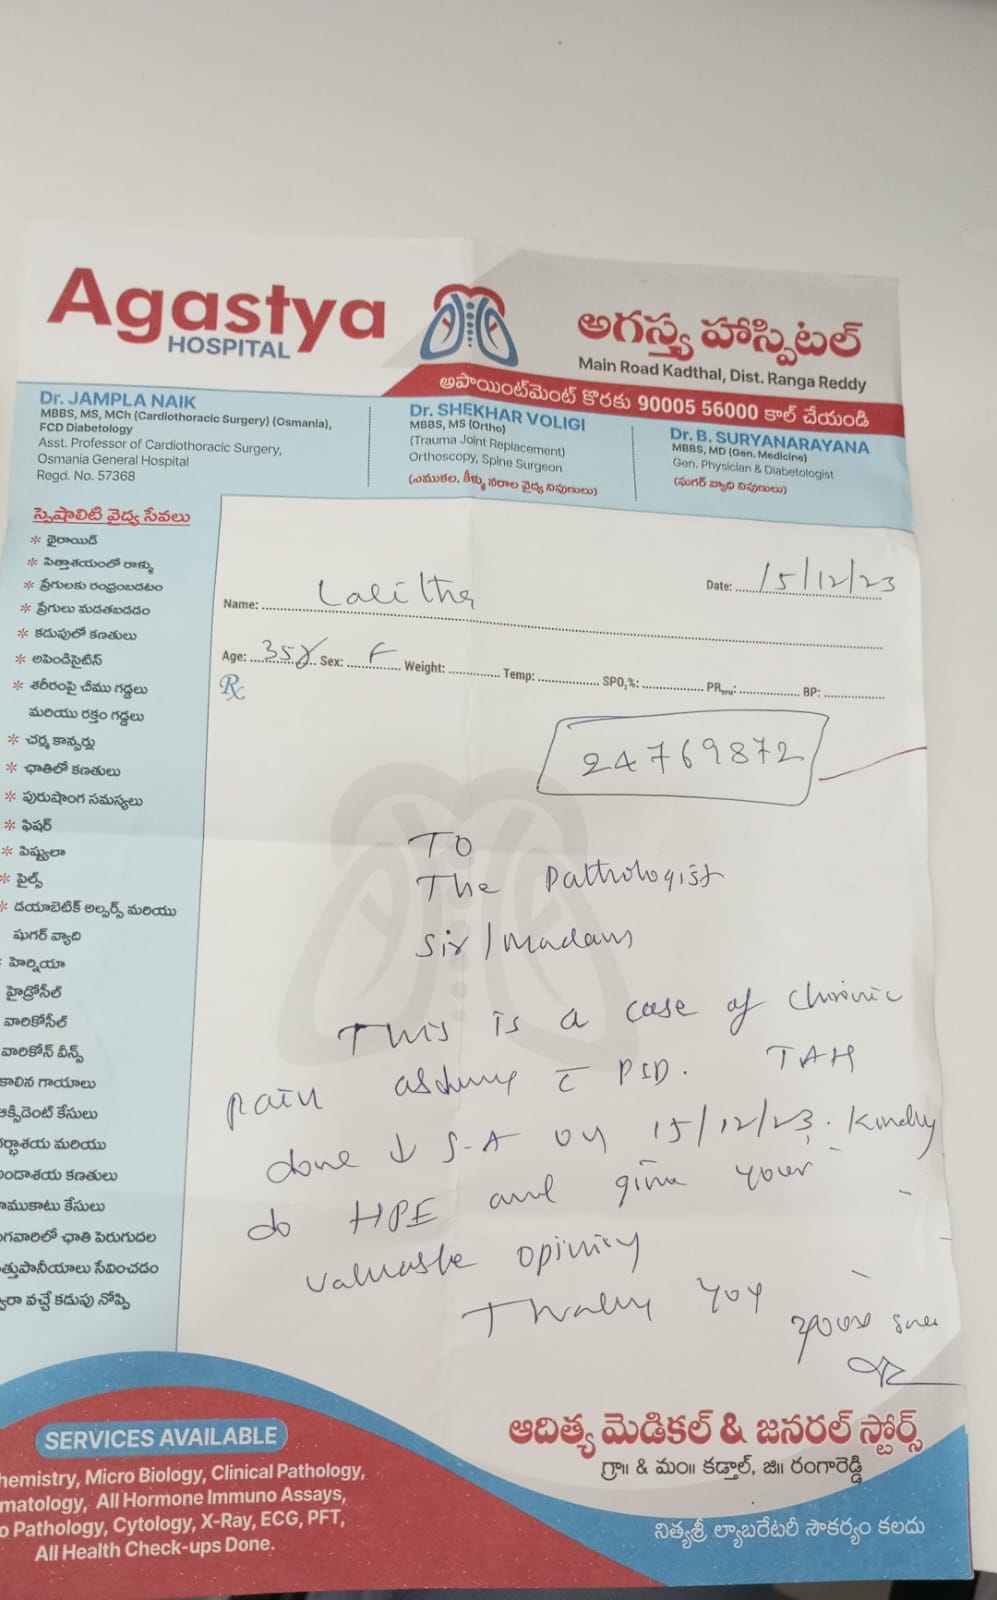 Agastya
HOSPITAL
అగస్త్య హాస్పిటల్
Main Road Kadthal, Dist. Ranga Reddy
అపాయింట్‌మెంట్ కొరకు 90005 56000 కాల్ చేయండి
Dr. JAMPLA NAIK
MBBS, MS, MCh (Cardiothoracic Surgery) (Osmania),
FCD Diabetology
Asst. Professor of Cardiothoracic Surgery,
Osmania General Hospital
Regd. No. 57368
Dr. SHEKHAR VOLIGI
MBBS, MS (Ortho)
(Trauma Joint Replacement)
Orthoscopy, Spine Surgeon
(ఎముకల, కీళ్ళు నరాల వైద్య నిపుణులు)
Dr. B. SURYANARAYANA
MBBS, MD (Gen. Medicine)
Gen. Physician & Diabetologist
(షుగర్ వ్యాధి నిపుణులు)
స్పెషాలిటి వైద్య సేవలు
* థైరాయిడ్
* పిత్తాశయంలో రాళ్ళు
* ప్రేగులకు రంధ్రంబడటం
* ప్రేగులు మడతబడడం
* కడుపులో కణతులు
* అపెండిసైటిస్
* శరీరంపై చీము గడ్డలు
మరియు రక్తం గడ్డలు
* చర్మ కాన్సర్లు
* ఛాతిలో కణతులు
* పురుషాంగ సమస్యలు
* ఫిషర్
* పిష్టులా
* పైల్స్
* డయాబెటిక్ అల్సర్స్ మరియు
షుగర్ వ్యాది
హెర్నియా
హైడ్రోసీల్
వారికోసీల్
వారికోస్ వీన్స్
కాలిన గాయాలు
క్సిడెంట్ కేసులు
మరియు
కణతులు
పాముకాటు కేసులు
మగవారిలో ఛాతి పెరుగుదల
సేవించడం
వచ్చే కడుపు నొప్పి
Name: Lalitha
Date: 15/12/23
Age: 35y Sex: F Weight: Temp: SPO2%: PR BPM: BP:
Rx
24769872
TO
The Pathologist
Sir/Madam
This is a case of chronic
pain c̄ PID. TAH
done ↓ S.A on 15/12/23. Kindly
do HPE and give your
valuable opinion
Thank you
yours
SERVICES AVAILABLE
hemistry, Micro Biology, Clinical Pathology,
matology, All Hormone Immuno Assays,
o Pathology, Cytology, X-Ray, ECG, PFT,
All Health Check-ups Done.
ఆదిత్య మెడికల్ & జనరల్ స్టోర్స్
గ్రా॥ & మం॥ కడ్తాల్, జి॥ రంగారెడ్డి
నిత్యశ్రీ ల్యాబరేటరీ సౌకర్యం కలదు